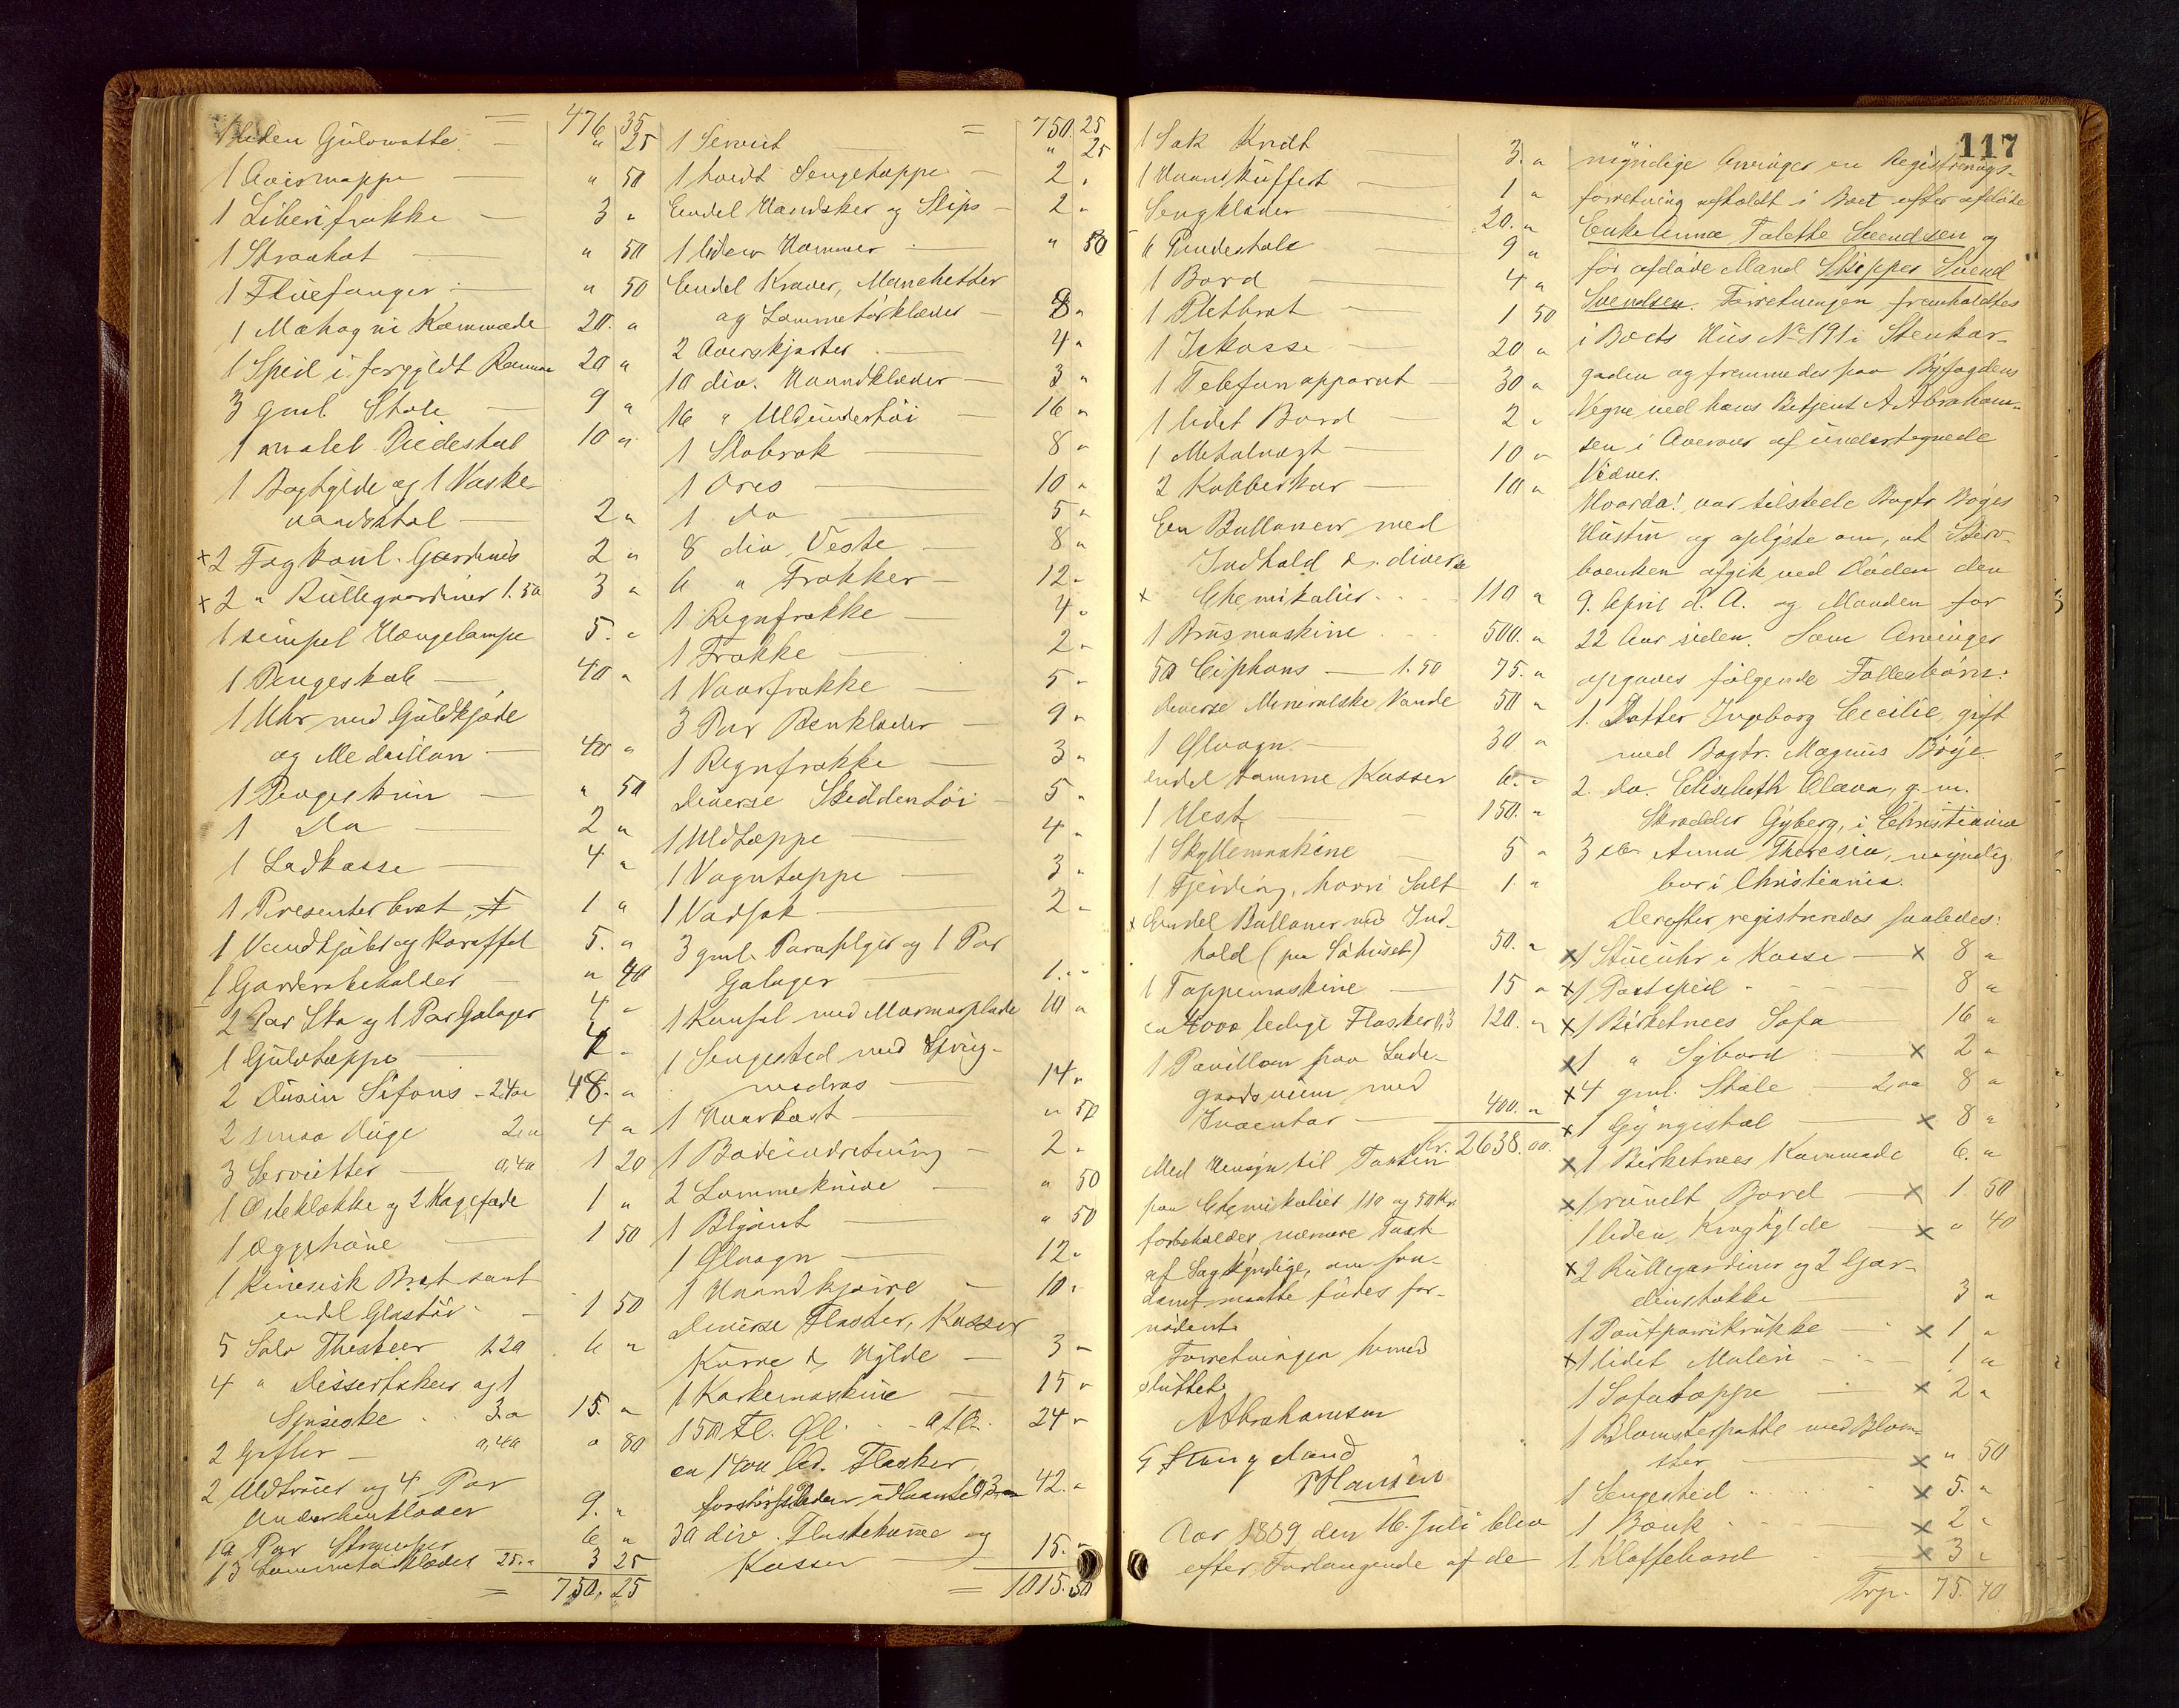 = 476 35
1 liden Gulvmatte — " 25
1 Avismappe — " 50
1 Liberifrakke — 3 "
1 Straahat — " 50
1 Fluefanger — " 50
1 Mahogni Kommode 20. "
1 Speil i forgyldt Ramme 20 "
3 gml. Stole — 9 "
1 malet Piedestal 10 "
1 Boghylde og 1 Vaske-
vandsstol — 2 "
x 2 Fag koul. Gardiner 2 "
x 2 " Rullegardiner 1.50 3 "
1 simpel Hængelampe 5. "
1 Pengeskab — 40 "
1 Uhr med Guldkjæde
og Medaillon — 40 "
1 Pengeskrin — " 50
1 Do — 2 "
1 Ladkasse — 4 "
1 Presenterbret 1 "
1 Vandkjøler og Karaffel 5. "
1 Garderobeholder — " 40
2 Par Sko og 1 Par Galoger 4 "
1 Gulvtæppe —
2 Dusin Sifons - 24 48. "
2 smaa Duge 2 " 4 "
3 Servietter — 0,40 1 20
1 Osteklokke og 2 Kagefade 1 "
1 Æggehøne — 1 50
1 Kinesisk Bret samt
endel Glastøi — 1 50
5 Sølv Theskeer 1.20 6 "
4 " Dessertskeer og 1
Spiseske 3." 15. "
2 Gafler — 0,40 " 80
2 Uldtrøier og 4 Par
Underbenklæder 9. "
10 Par Strømper 6 "
13 Lommetørklæder 25." 3 25
= 750. 25
= 750. 25
1 Serviet " 25
1 hvidt Sengetæppe — 2 "
Endel Handsker og Slips — 2 "
1 liden Hammer " 50
Endel Kraver, Manchetter
og Lommetørklæder — 8 "
2 Overskjorter — 4 "
10 div. Haandklæder — 3 "
16 " Uldundertøi — 16 "
1 Slobrok — 8 "
1 Dres — 10 "
1 do — 5 "
8 div Veste — 8 "
6 " Frakker — 12 "
1 Regnfrakke — 4 "
1 Frakke — 2 "
1 Vaarfrakke — 5 "
3 Par Benklæder — 9 "
1 Regnfrakke — 3 "
Diverse Skiddentøi — 5 "
1 Uldtæppe — 4 "
1 Vogntæppe — 3 "
1 Vadsæk — 2 "
3 gml. Paraplyer og 1 Par
Galoger — 1. "
1 Konsol med Marmorplade 10 "
1 Sengested med Spring-
madras — 14 "
1 Haarkost — " 50
1 Badeindretning — 2 "
2 Lommeknive — " 50
1 Blyant — " 50
1 Ølvogn — 12 "
1 Haandkjærre — 10 "
Diverse Flasker, Kasser
Kurve & Hylde — 3 "
1 Korkemaskine — 15 "
150 Fl. Øl. - a 16. 24 "
ca 1400 led. Flasker
42. "
30 div. Flaskekurve og
Kasser — 15. "
= 1015. 50
1 Sæk Kridt — 3. "
1 Haandkuffert — 1 "
Sengklæder — 20. "
6 Pindestole — 9 "
1 Bord — 4 "
1 Pletbret — 1 50
1 Iskasse — 20 "
1 Telefonapparat — 30 "
1 lidet Bord — 2 "
1 Metalvægt — 10 "
2 Kobberkar — 10 "
En Ballaner med
Indhold & diverse
x Chemikalier 110 "
1 Brusmaskine 500. "
50 Ciphons — 1.50 75. "
Diverse Mineralske Vande 50 "
1 Ølvogn. — 30 "
endel tomme Kasser 6. "
1 Hest — 150. "
1 Skyllemaskine 5 "
1 Fjerding, hvori Salt 1. "
x Endel Ballaner med Ind-
hold (paa Søhuset) 50. "
1 Tappemaskine — 15 "
ca 4000 ledige Flasker 0,3 120. "
1 Pavillon paa Lade-
gaardsveien med
Inventar — 400. "
Kr. 2638.00.
Med Hensyn til Taxten
paa Chemikalier 110 og 50 Kr.
forbeholdes nærmere Taxt
af Sagkyndige, om saa-
dant maatte findes for-
nødent.
Forretningen hermed
sluttet.
A Abrahamsen
G Stangeland
P Hansen
Aar 1889 den 16. Juli blev
efter Forlangende af de
117
myndige Arvinger en Registrerings-
forretning afholdt i Boet efter afdøde
Enke Anna Talette Svendsen og
før afdøde Mand Skipper Svend
Svendsen. Forretningen fremholdtes
i Boets Hus No 191 i Stenkar-
gaden og fremmedes paa Byfogdens
Vegne ved hans Betjent A Abraham-
sen i Overvær af undertegnede
Vidner.
Hvorda! var tilstede Bagtr Bøjes
Hustru og oplyste om, at Sterv-
boenken afgik ved Døden den
9. April d. A. og Manden for
22 Aar siden. Som Arvinger
opgaves følgende Fællesbørn:
1. Datter Ingeborg Cecilie, gift
med Bagtr. Magnus Bøje.
2. do. Elisabeth Olava, g. m.
Skrædder Gyberg, i Christiania
3 do Anna Theresia, myndig
bor i Christiania.
Derefter registreredes saaledes:
x 1 Stueuhr i Kasse — x 8 "
x 1 Postspeil 8 "
x 1 Birketræes Sofa 16 "
x 1 " Sybord x 2 "
x 4 gml. Stole 2 " 8 "
x 1 Gyngestol — x 8 "
x 1 Birketræes Kommode 6. "
x 1 rundt Bord — x 1. 50
1 liden Kroghylde — x " 40
x 2 Rullegardiner og 2 Gar-
dinstokke — 3 "
1 Poutpourikrukke — x 1 "
x 1 lidet Maleri 1 "
1 Sofatæppe x 2 "
1 Blomsterpotte med Blom-
ster — x " 50
1 Sengested x 5. "
1 Bænk x 2 "
1 Klaffebord x 3 "
Trp. 75. 40